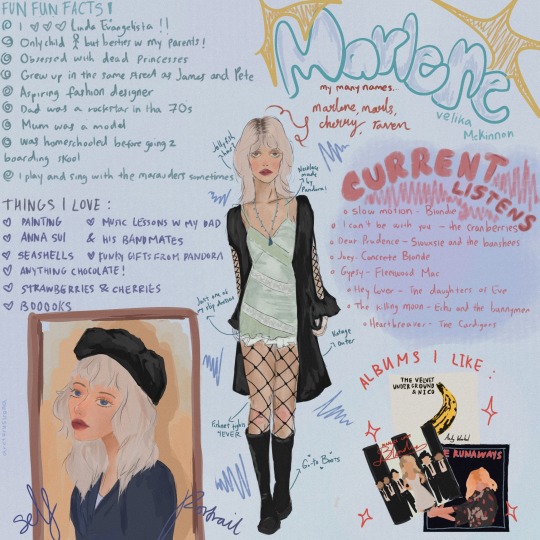 FUN FUN FACTS!
I ♡♡♡ Linda Evangelista !!
Only child but besties w my parents!
Obsessed with dead princesses
Grew up in the same street as James and Pete
Aspiring fashion designer
Dad was a rockstar in tha 70s
Mum was a model
was homeschooled before going 2
boarding skool
I play and sing with the marauders sometimes
THINGS I LOVE :
♡ PAINTING
♡ ANNA SUI
♡ SEASHELLS
♡ ANYTHING CHOCOLATE!
♡ STRAWBERRIES & CHERRIES
♡ BOOOOKS
♡ MUSIC LESSONS W MY DAD
& HIS BANDMATES
♡ FUNKY GIFTS FROM PANDORA
Marlene
velika
McKinnon
my many names..
marlene, marls,
cherry, raven
Jellyfish
hair!
Necklace
made by
Pandora!
Just one of
my slip dresses
Vintage
outer
Fishnet tights
4EVER
Go-To Boots
CURRENT
LISTENS
Slow motion - Blondie
I can't be with you - the cranberries
Dear Prudence - Siouxsie and the banshees
Joey - Concrete Blonde
Gypsy - Fleetwood Mac
Hey Lover - The daughters of Eve
The killing moon - Echo and the bunnymen
Heartbreaker - The Cardigans
ALBUMS I LIKE :
THE VELVET
UNDERGROUND
& NICO
Andy Warhol
Blondie
THE RUNAWAYS
self
Portrait